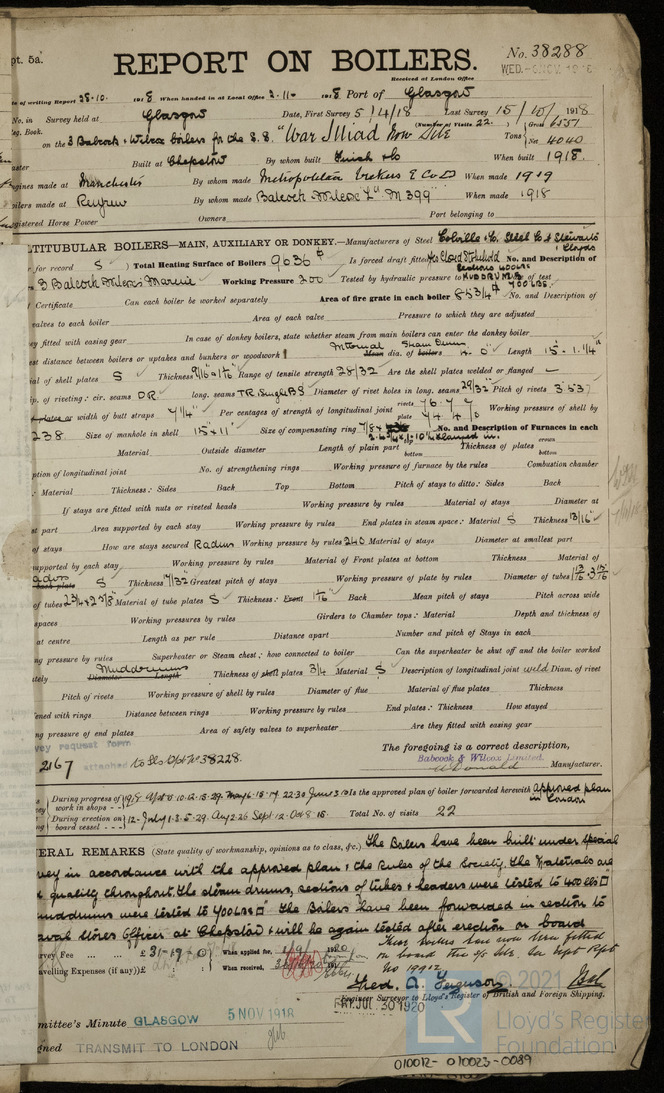 pt. 5a.
REPORT ON BOILERS.
No. 38288
Received at London Office
WED. 
te of writing Report 28.10. 1918 When handed in at Local Office 2.11. 1918 Port of Glasgow
No. in Survey held at Glasgow Date, First Survey 5/4/18 Last Survey 15/10/1918
Reg. Book. (Number of Visits 22.) Gross
on the 3 Babcock & Wilcox boilers for the S.S. "War Iliad" Tons Net 4040
Built at Chepstow By whom built When built 1918.
ngines made at Manchester By whom made Metropolitan Vickers E Co Ld When made 1919
oilers made at Renfrew By whom made Babcock & Wilcox Ld "M 399" When made 1918
egistered Horse Power Owners Port belonging to
TITUBULAR BOILERS—MAIN, AUXILIARY OR DONKEY.—Manufacturers of Steel Colville & Co. Steel Co of S Stewarts & Lloyds
for record S Total Heating Surface of Boilers 9636 Is forced draft fitted Yes Closed Stokehold No. and Description of
Sections 400 lbs
3 Babcock & Wilcox Marine Working Pressure 200 Tested by hydraulic pressure to MUDDRUMS 400 LBS. of test
Certificate Can each boiler be worked separately Area of fire grate in each boiler 85 3/4 No. and Description of
valves to each boiler Area of each valve Pressure to which they are adjusted
ey fitted with easing gear In case of donkey boilers, state whether steam from main boilers can enter the donkey boiler
est distance between boilers or uptakes and bunkers or woodwork Internal Mean dia. of boilers Steam Drum Length 15'-1 1/4"
ial of shell plates S Thickness 9/16 & 1 1/16" Range of tensile strength 28/32 Are the shell plates welded or flanged —
ip. of riveting: cir. seams DR long. seams TR Single BS Diameter of rivet holes in long. seams 29/32" Pitch of rivets 3.537
plates or width of butt straps 7 1/4" Per centages of strength of longitudinal joint rivets 76.7% plate 74.4% Working pressure of shell by
238 Size of manhole in shell 15"x11" Size of compensating ring No. and Description of Furnaces in each
Material Outside diameter Length of plain part top bottom Thickness of plates crown bottom
ption of longitudinal joint No. of strengthening rings Working pressure of furnace by the rules Combustion chamber
: Material Thickness: Sides Back Top Bottom Pitch of stays to ditto: Sides Back
If stays are fitted with nuts or riveted heads Working pressure by rules Material of stays Diameter at
st part Area supported by each stay Working pressure by rules End plates in steam space: Material S Thickness 13/16"
of stays How are stays secured Radius Working pressure by rules 240 Material of stays Diameter at smallest part
upported by each stay Working pressure by rules Material of Front plates at bottom Thickness Material of
S Thickness 17/32 Greatest pitch of stays Working pressure of plate by rules Diameter of tubes 1 13/16 & 3 15/16"
of tubes Material of tube plates S Thickness: Front 1 1/16" Back Mean pitch of stays Pitch across wide
spaces Working pressures by rules Girders to Chamber tops: Material Depth and thickness of
at centre Length as per rule Distance apart Number and pitch of Stays in each
ng pressure by rules Superheater or Steam chest; how connected to boiler Can the superheater be shut off and the boiler worked
tely Muddrums Diameter Length Thickness of shell plates 3/4 Material S Description of longitudinal joint weld Diam. of rivet
Pitch of rivets Working pressure of shell by rules Diameter of flue Material of flue plates Thickness
ened with rings Distance between rings Working pressure by rules End plates: Thickness How stayed
ng pressure of end plates Area of safety valves to superheater Are they fitted with easing gear
vey request form
2167 attached to Gls Rpt No 38228.
The foregoing is a correct description,
Babcock & Wilcox Limited.
Manufacturer.
During progress of work in shops - - 1918. Apl 5.10.12.15.29. May 6.15.17.22.30 June 3.10 Is the approved plan of boiler forwarded herewith approved plan in London
During erection on board vessel - - - 12. July 1.3.5.29. Aug 2.26 Sept 12. Oct 8.15. Total No. of visits 22
ERAL REMARKS (State quality of workmanship, opinions as to class, &c.) The Boilers have been built under Special
vey in accordance with the approved plan & the Rules of the Society. The Materials are
quality throughout. The steam drums, sections of tubes & headers were tested to 400 lbs □"
muddrums were tested to 400 lbs □" The Boilers have been forwarded in section to
aval Stores Officer at Chepstow & will be again tested after erection on board
These boilers have now been fitted
on board the
No 19912
urvey Fee ... ... £ 31 - 9 : 0 When applied for, 1920
avelling Expenses (if any) £ : : When received,
Fred. A. Ferguson.
Engineer Surveyor to Lloyd's Register of British and Foreign Shipping.
FRI. JUL. 30 1920
mmittee's Minute GLASGOW 5 NOV 1918
gned TRANSMIT TO LONDON
© 2021
LR
Lloyd's Register
Foundation
010012-010023-0089